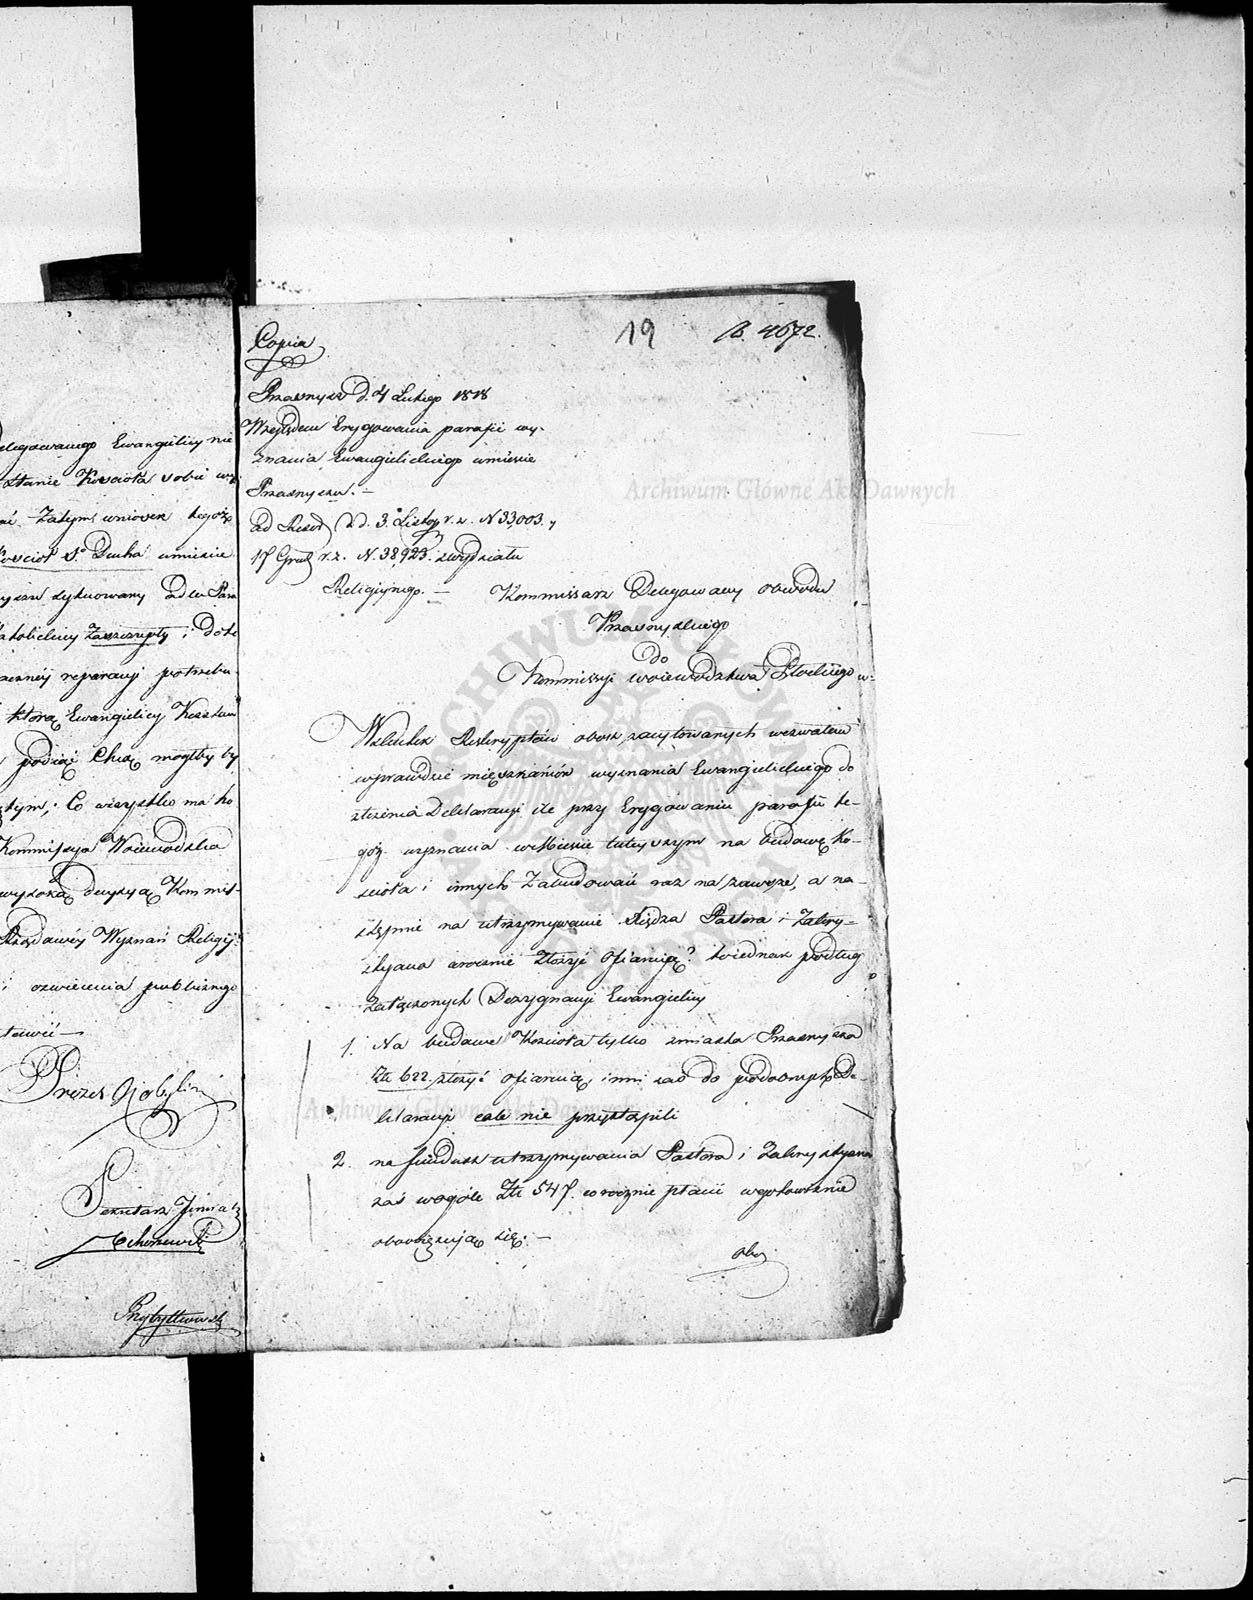 elegowanego Ewangelicy nie
stanie Kościoła sobie wy
ać. Zatym wniosek tegoż
Kościoł S. Ducha w mieście
yszu sytuowany ad w Para
Katolickiey Zaszczupły i dość
aczney reparacyi potrzebu
którą Ewangelicy Kosztem
podiąć Chcą mogłby by
tym; Co wszystko ma ho
Kommissya Woiewodzka
wysoką decyzyą Kommis-
Rządowéy Wyznań Religij
i oswiecenia publicznego
tawić —
Prezes Kobyliń
Sekretarz Jeneral
Cichorzewski
Przybyłkowski
19
B. 4672.
Copia
Przasnysz d. 4 Lutego 1818
Względem Erygowania parafii wy-
znania Ewangelickiego w mieście
Przasnyszu. —
ad Reser d. 3. Listop r. z. N 33,003. y
17 Grud r. z. N. 38,923. z wydziału
Religiynego. —
Kommissarz Delegowany Obwodu
Przasnyskiego
do
Kommissyi Woiewodztwa Płockiego
Wskutek Reskryptów obok zacytowanych wezwałem
wprawdzie mięszkańców wyznania Ewangelickiego do
złożenia Deklaracyi ile przy Erygowaniu parafii te-
goż wyznania w Mieście tuteyszym na budowę Ko-
ścioła i innych Zabudowań raz na zawsze, a na-
stępnie na utrzymywanie Xiędza Pastora i Zakry-
styana corocznie złożyć Ofiaruią? wiednak podług
Załączonych Dezygnacyi Ewangelicy
1. Na budowę Kościoła tylko z miasta Przasnysza
Złt 622. złożyć ofiaruią, inni zaś do podobnych De-
klaracyi cale nie przystąpili
2. na fundusz utrzymywania Pastora i Zakrystyana
zaś wogóle Złt 547. corocznie płacić w gotowiznie
obowięzuią się. —
obo
Archiwum Główne Akt Dawnych
Archiwum Główne Akt Dawnych